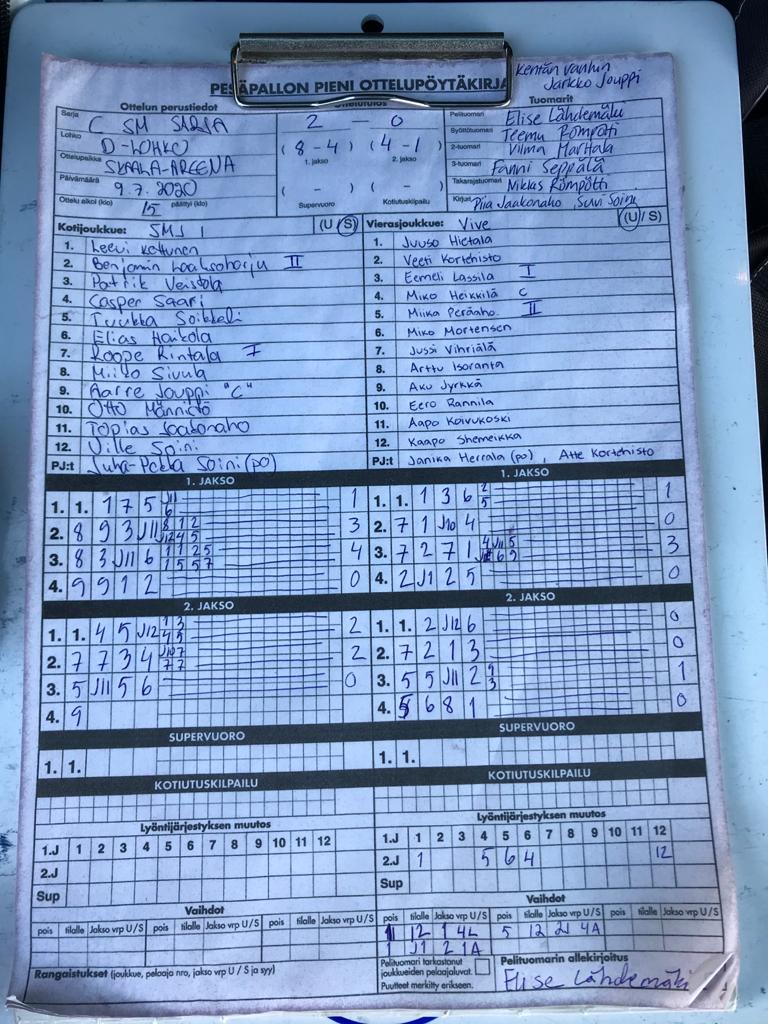 Kentän vanhin
Jarkko Jouppi
PESÄPALLON PIENI OTTELUPÖYTÄKIRJA
Ottelun perustiedot
Tuomarit
Sarja C SM SARJA
2 - 0
Pelituomari Elise Lähdemäki
Lohko D-LOHKO
(8 - 4) (4 - 1)
1. jakso 2. jakso
Syöttötuomari Teemu Römpötti
Ottelupaikka SKAALA-AREENA
2-tuomari Vilma Marttala
3-tuomari Fanni Seppälä
Päivämäärä 9.7.2020
( - ) ( - )
Takarajatuomari Niklas Römpötti
Ottelu alkoi (klo) 15 päättyi (klo)
Supervuoro Kotiutuskilpailu
Kirjuri Piia Jaakonaho, Suvi Soini
Kotijoukkue: SMJ 1 (U/S)
Vierasjoukkue: Vive (U/S)
1. Leevi Kettunen
2. Benjamin Laaksoharju II
3. Patrik Veistola
4. Casper Saari
5. Tuukka Soikkeli
6. Elias Haikola
7. Roope Rintala I
8. Miilo Sivula
9. Aarre Jouppi "C"
10. Otto Männistö
11. Topias Jaakonaho
12. Ville Soini
PJ:t Juha-Pekka Soini (po)
1. Juuso Hietala
2. Veeti Kortehisto
3. Eemeli Lassila I
4. Miko Heikkilä C
5. Miika Peräaho II
6. Miko Mortensen
7. Jussi Vihriälä
8. Arttu Isoranta
9. Aku Jyrkkä
10. Eero Rannila
11. Aapo Koivukoski
12. Kaapo Shemeikka
PJ:t Janika Herrala (po), Atte Kortehisto
1. JAKSO
1. 1. 1 7 5 J11 6 1
2. 8 9 3 J11 8 1 2 J12 4 5 3
3. 8 3 J11 6 1 1 2 5 1 5 5 7 4
4. 9 9 1 2 0
1. JAKSO
1. 1. 1 3 6 2 5 1
2. 7 1 J10 4 0
3. 7 2 7 1 4 J11 5 6 9 3
4. 2 J1 2 5 0
2. JAKSO
1. 1. 4 5 J12 1 3 4 5 2
2. 7 7 3 4 J10 7 7 7 2
3. 5 J11 5 6 0
4. 9
2. JAKSO
1. 1. 2 J12 6 0
2. 7 2 1 3 0
3. 5 5 J11 2 9 3 1
4. 5 6 8 1 0
SUPERVUORO
1. 1.
SUPERVUORO
1. 1.
KOTIUTUSKILPAILU
KOTIUTUSKILPAILU
Lyöntijärjestyksen muutos
1.J 1 2 3 4 5 6 7 8 9 10 11 12
2.J
Sup
Lyöntijärjestyksen muutos
1.J 1 2 3 4 5 6 7 8 9 10 11 12
2.J 1 5 6 4 12
Sup
Vaihdot
pois tilalle Jakso vrp U/S pois tilalle Jakso vrp U/S pois tilalle Jakso vrp U/S
Vaihdot
pois tilalle Jakso vrp U/S pois tilalle Jakso vrp U/S pois tilalle Jakso vrp U/S
12 1 4L 5 12 2 4A
1 J1 2 1A
Rangaistukset (joukkue, pelaaja nro, jakso vrp U / S ja syy)
Pelituomari tarkastanut
joukkueiden pelaajaluvat.
Puutteet merkitty erikseen.
Pelituomarin allekirjoitus
Elise Lähdemäki